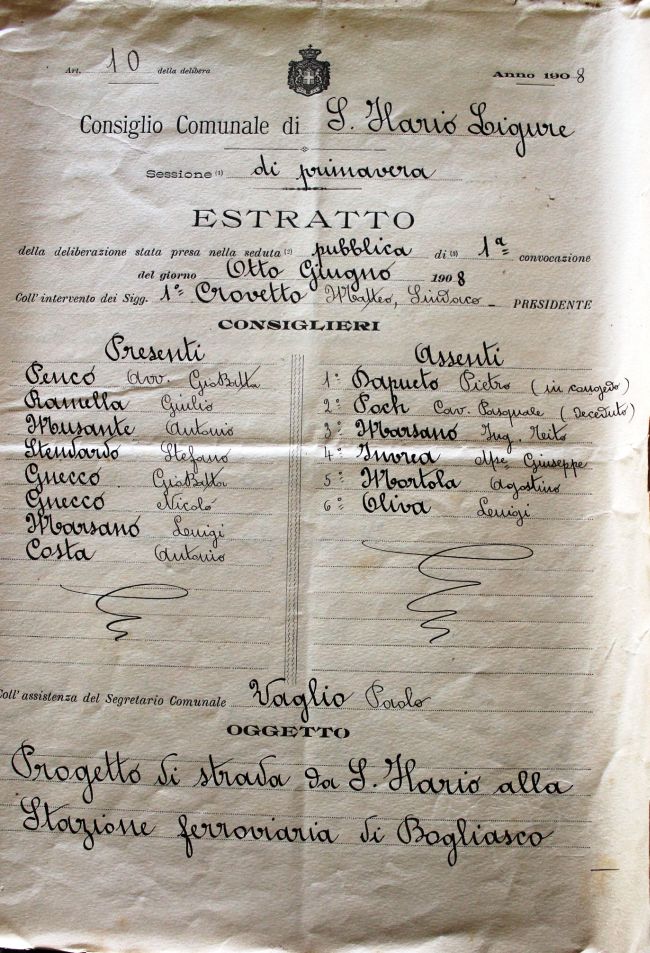 Art. 10 della delibera
Anno 1908
Consiglio Comunale di S. Ilario Ligure
Sessione (1) di primavera
ESTRATTO
della deliberazione stata presa nella seduta (2) pubblica di (3) 1ª convocazione
del giorno Otto Giugno 1908
Coll' intervento dei Sigg. 1º Crovetto Matteo, Sindaco - PRESIDENTE
CONSIGLIERI
Presenti
Penco Avv. Gio Batta
Ramella Giulio
Musante Antonio
Stendardo Stefano
Gnecco Gio Batta
Gnecco Nicoló
Marsano Luigi
Costa Antonio
Assenti
1º Dapueto Pietro (in congedo)
2º Poch Cav. Pasquale (Deceduto)
3º Marsano Ing. Neito
4º Invrea Mse Giuseppe
5º Martola Agostino
6º Oliva Luigi
Coll' assistenza del Segretario Comunale Vaglio Paolo
OGGETTO
Progetto di strada da S. Ilario alla
Stazione ferroviaria di Bogliasco